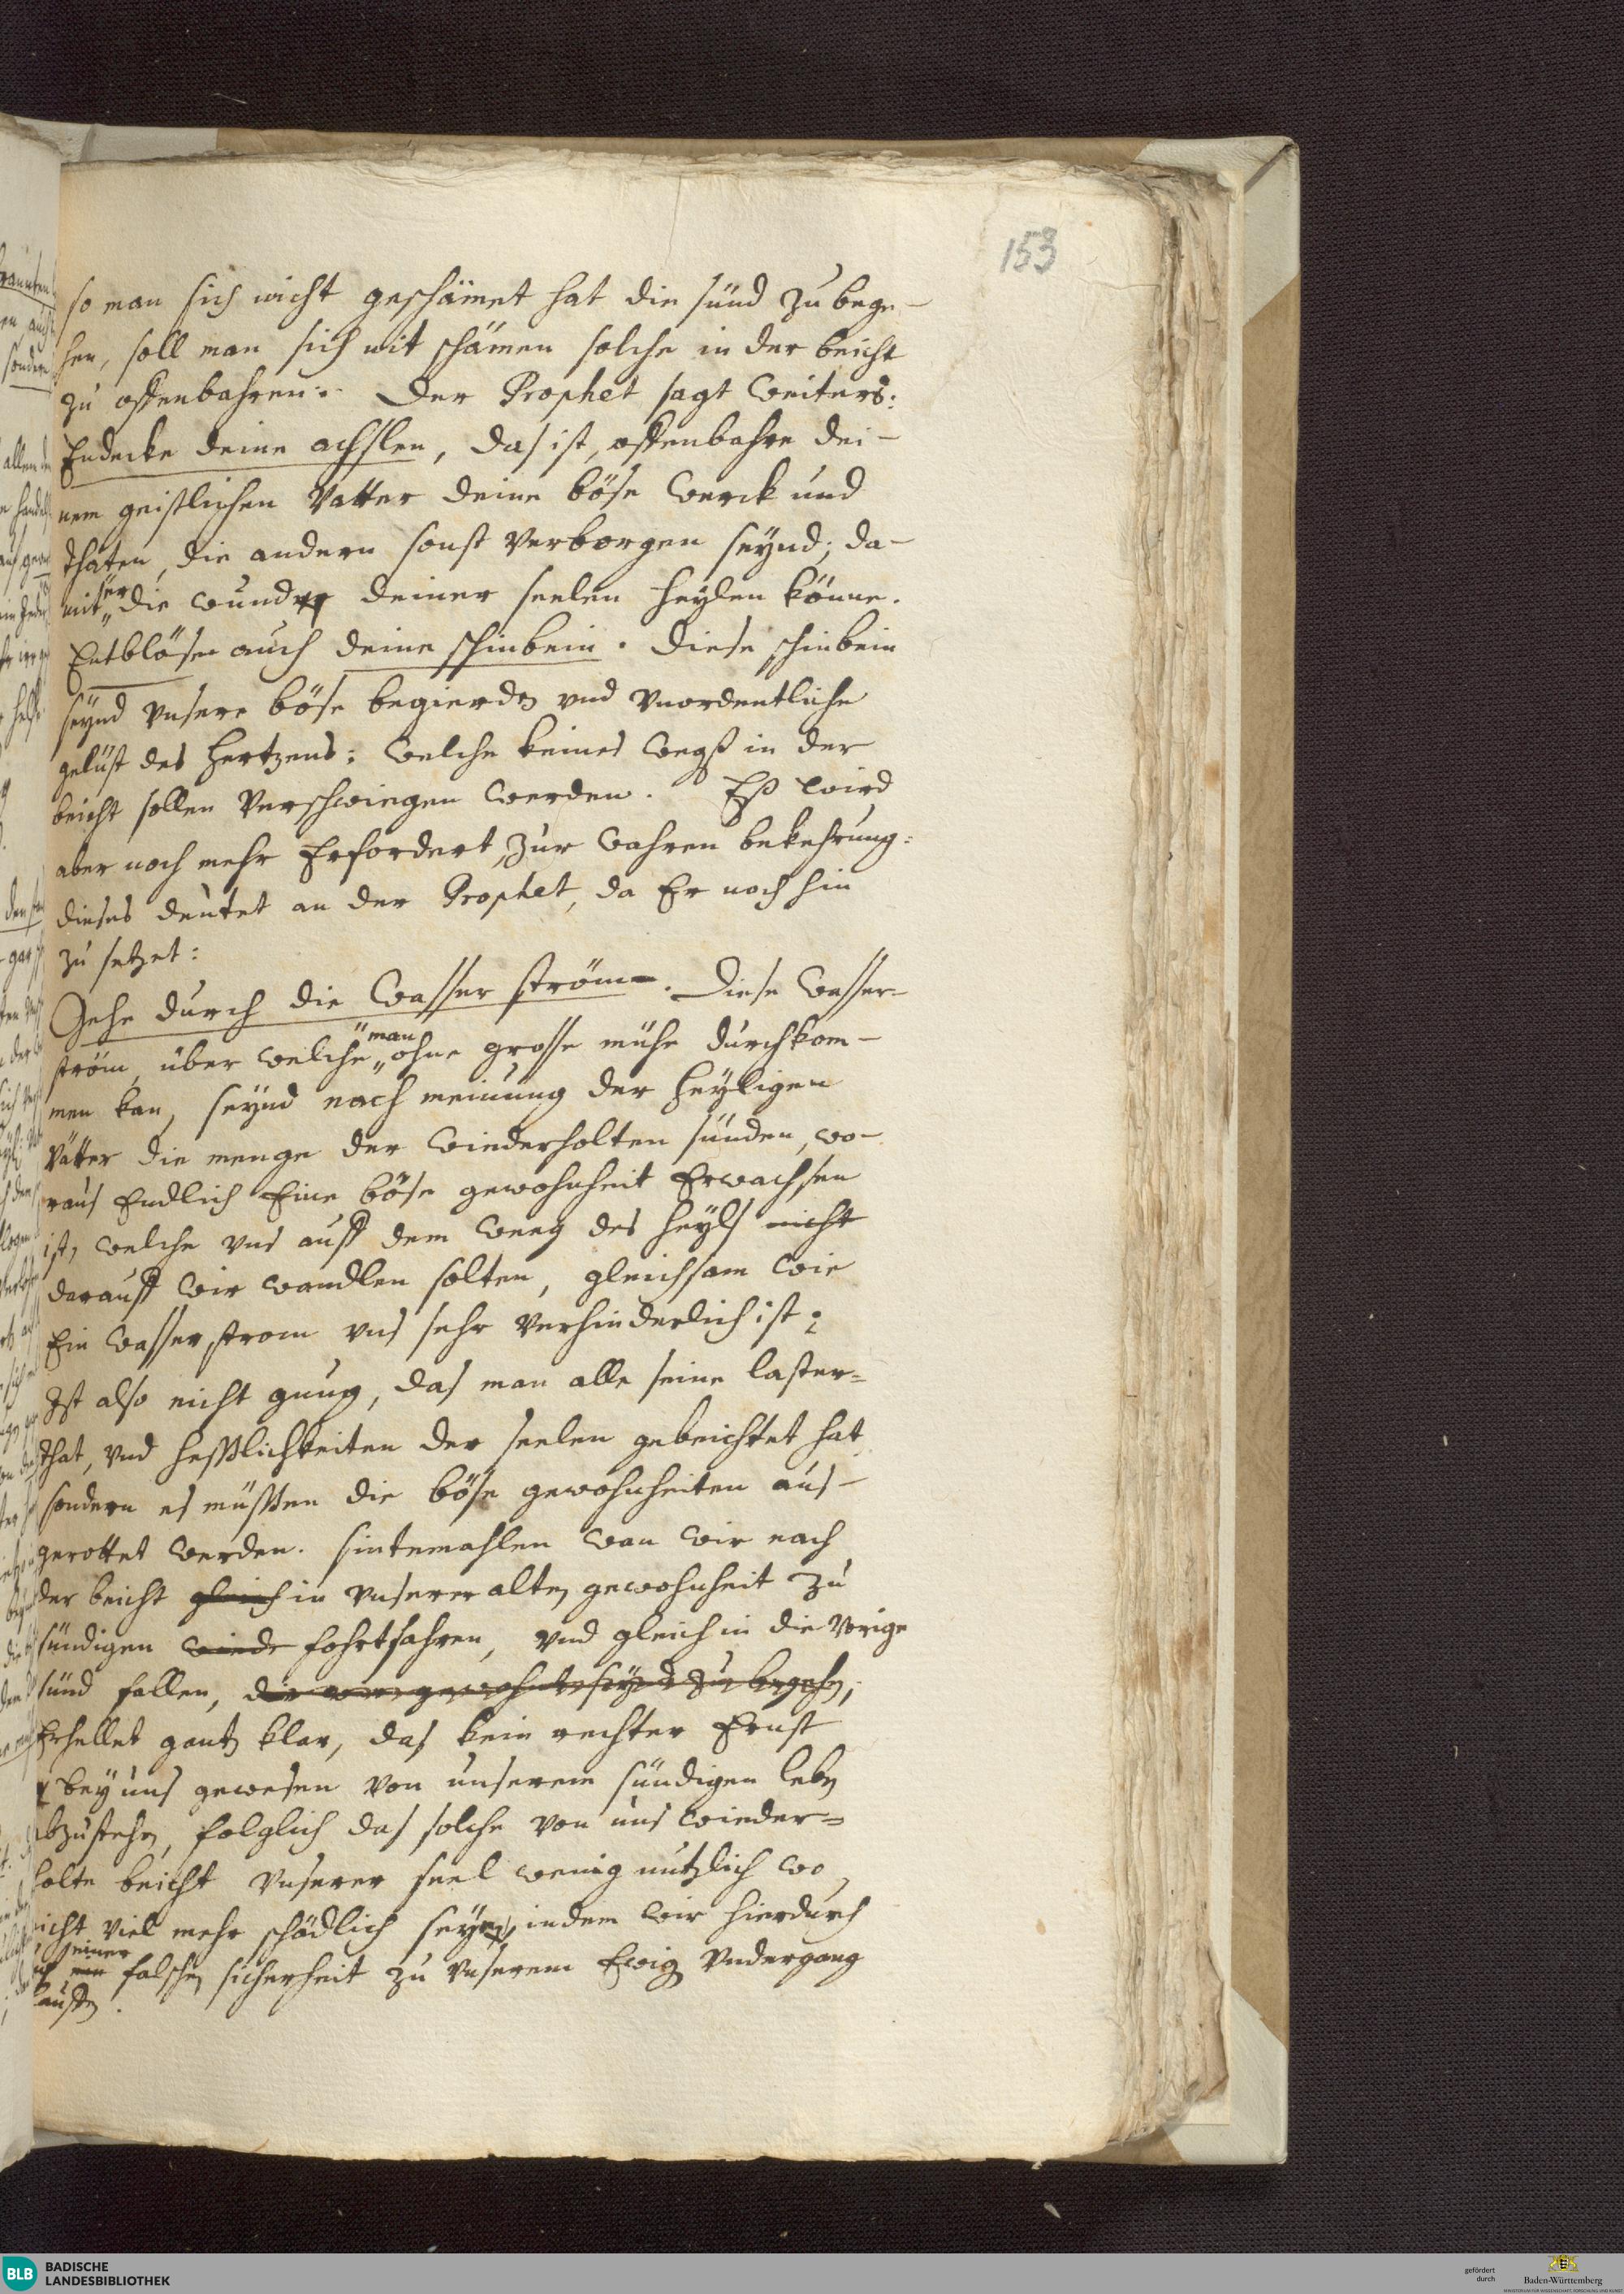 153
so man sich nicht geschämet hat die sünd zu bege-
hen, soll man sich nit schämen solche in der beicht
zu offenbahren. Der Prophet sagt weiters:
Endecke deine achslen, das ist, offenbahre dei-
nem geistlichen Vatter deine böse werck und
thaten, die andern sonst verborgen seynd; da-
mit er die wunden deiner seelen heylen könne.
Entblöse auch deine schinbein. Diese schinbein
seynd vnsere böse begierden vnd vnordentliche
gelüst des Hertzens: welche keines wegß in der
beicht sollen verschwiegen werden. Eß wird
aber noch mehr erfordert, zur wahren bekehrung:
dieses deutet an der Prophet, da Er noch hin
zu setzet:
Gehe durch die Wasser ström. Diese Wasser-
ström, über welche man ohne grosse mühe durchkom-
men kan, seynd nach meinung der heyligen
Vätter die menge der wiederholten sünden, wo-
raus Endlich Eine böse gewohnheit Erwachsen
ist, welche vns auff dem weeg des heyls nicht
darauff wir wandlen solten, gleichsam wie
Ein wasser strom vns sehr verhinderlich ist;
Ist also nicht gnug, das man alle seine laster-
that, vnd hesslichkeiten der seelen gebeichtet hat
sondern es müssen die böse gewohnheiten aus-
gerottet werden. sintemahlen wan wir nach
der beicht gleich in vnserer alten gewohnheit zu
sündigen wiede fohrtfahren, vnd gleich in die Vorige
sünd fallen, die wir gewohnt seynd zu begehn,
Erhellet gantz klar, das kein rechter Ernst
bey uns gewesen von unserem sündigen leben
abzustehn, folglich das solche von uns wieder-
holte beicht vnserer seel wenig nutzlich wo
nicht viel mehr schädlich seye, indem wir hierdurch
in seiner falschen sicherheit zu vnserem Ewig vndergang
lauffen.
BLB BADISCHE
LANDESBIBLIOTHEK
gefördert
durch
Baden-Württemberg